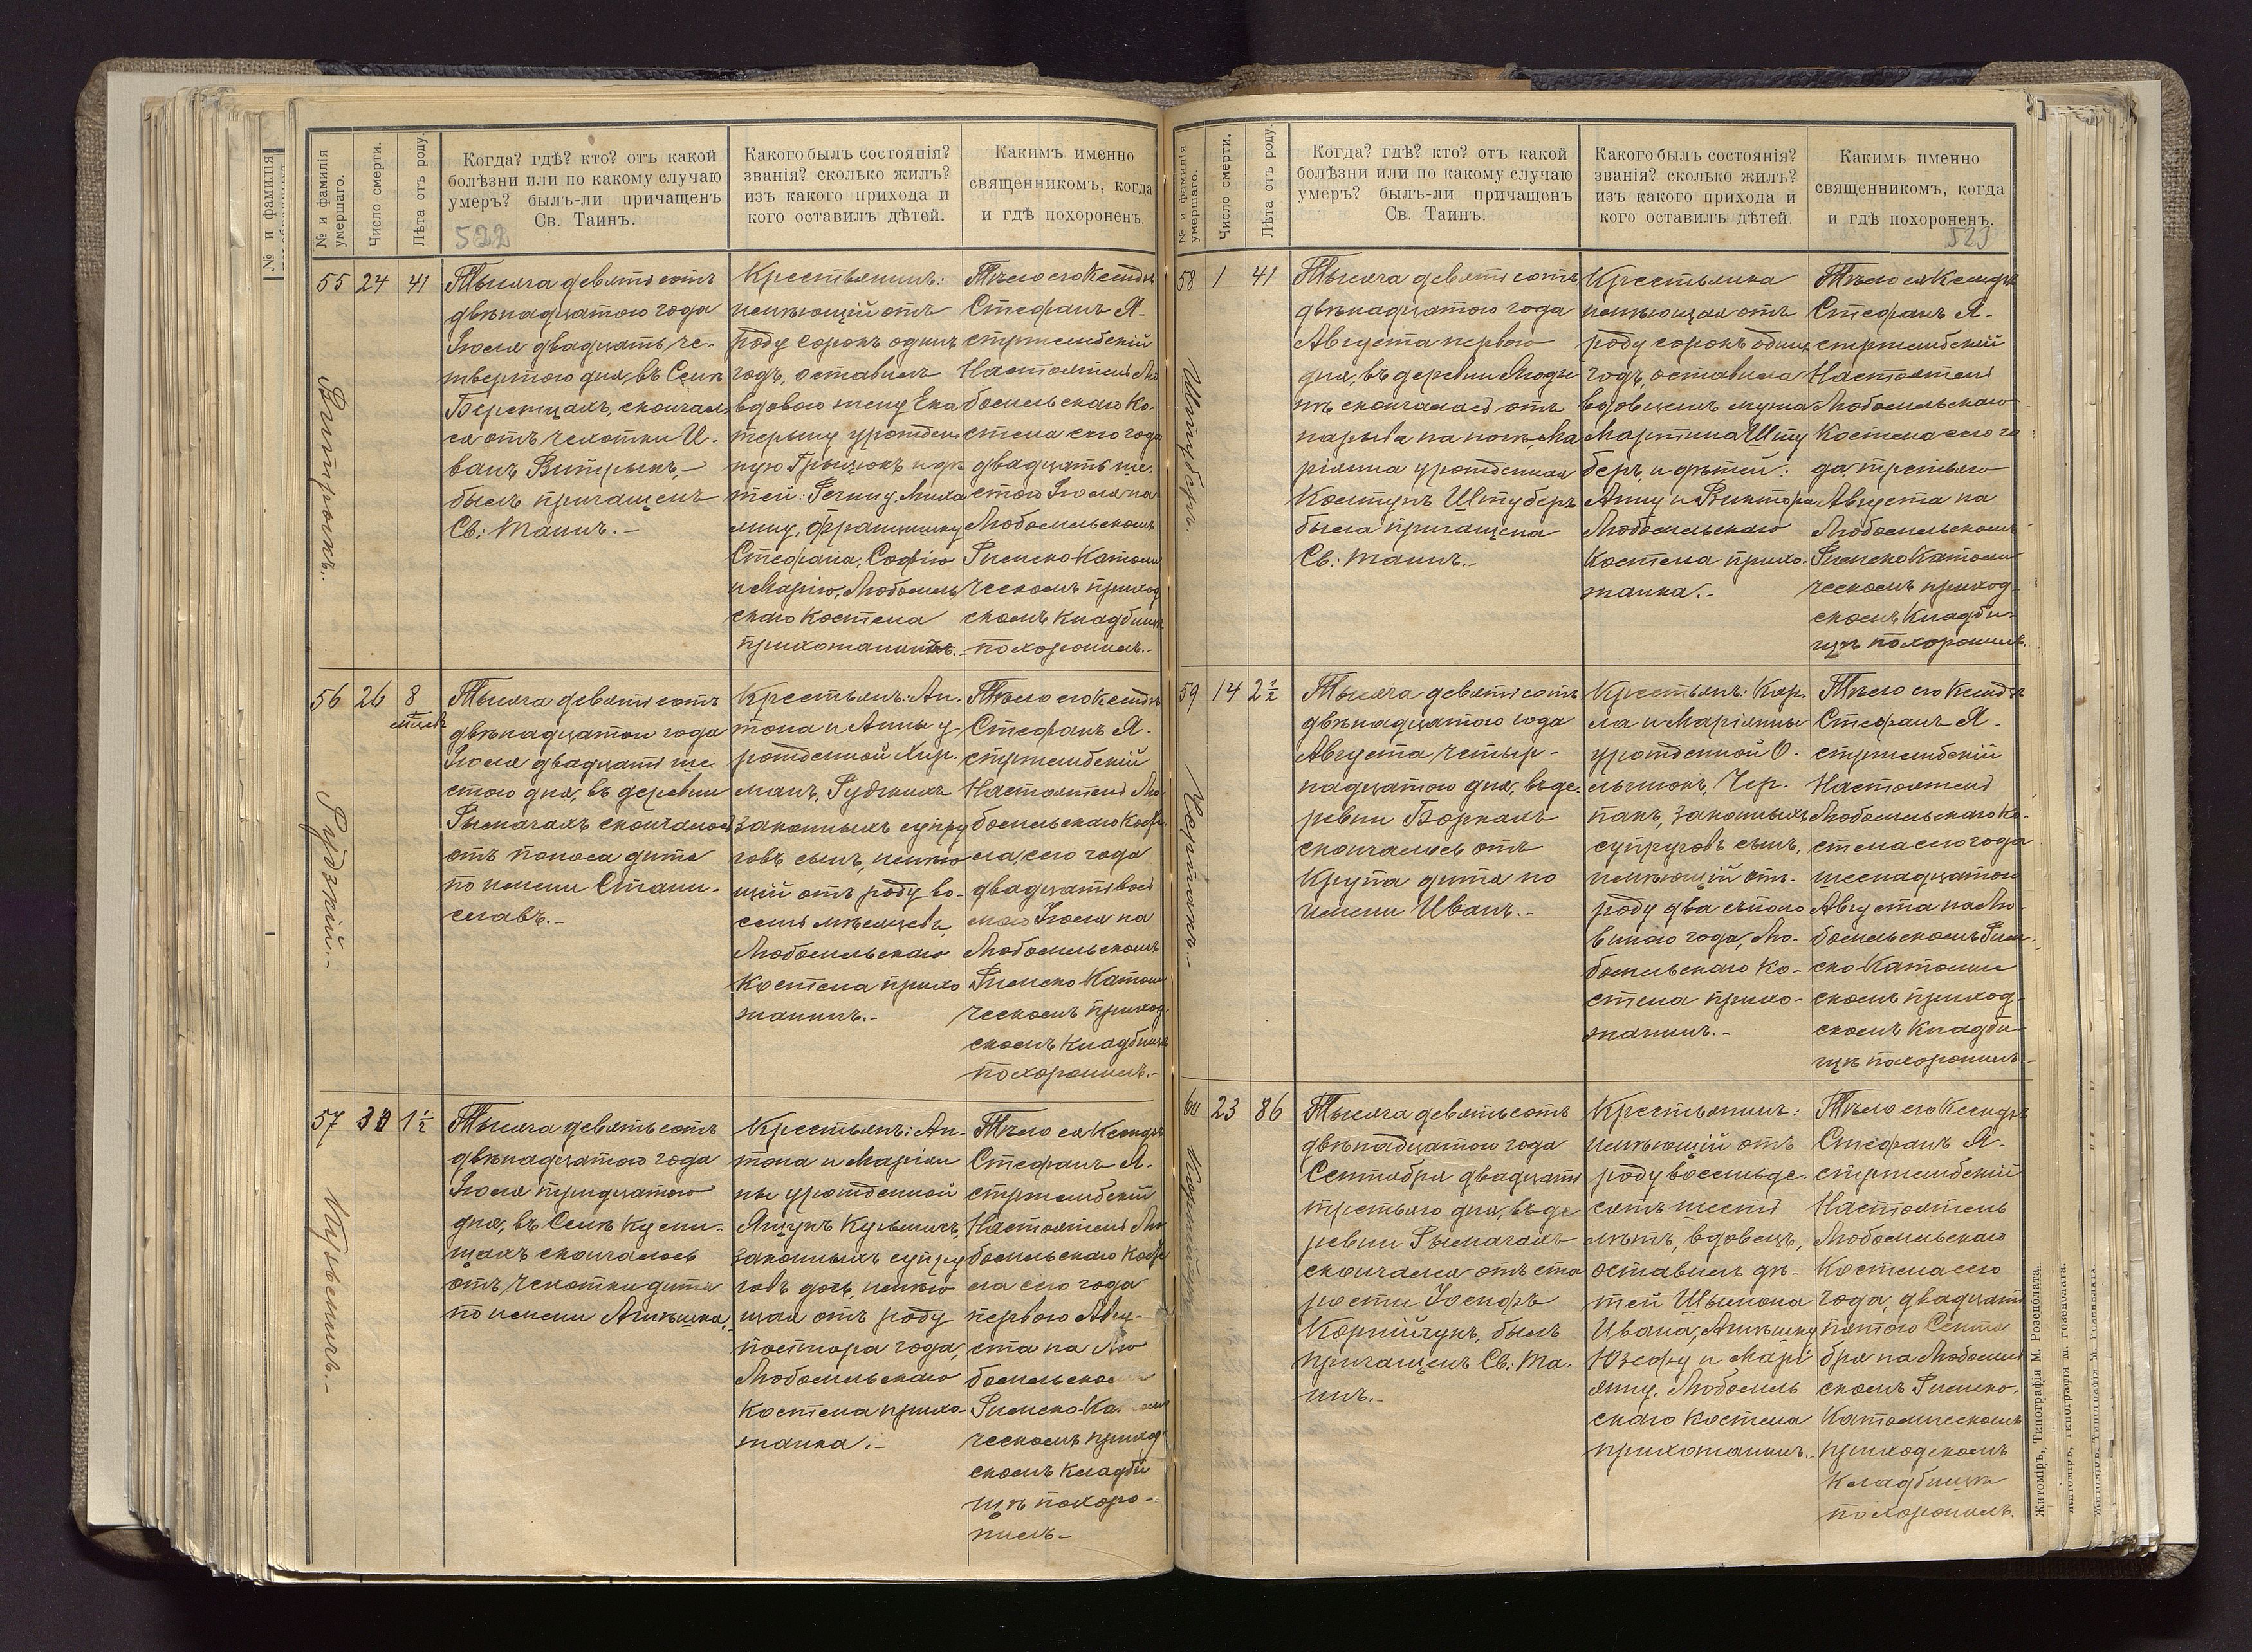 № и фамилія
№ и фамилія умершаго.
Число смерти.
Лѣта отъ роду.
Когда? гдѣ? кто? отъ какой
болѣзни или по какому случаю
умеръ? былъ-ли причащенъ
Св. Таинъ.
522
Какого былъ состоянія?
званія? сколько жилъ?
изъ какого прихода и
кого оставилъ дѣтей.
Какимъ именно
священникомъ, когда
и гдѣ похороненъ.
55
24
41
Тысяча девятьсотъ
двѣнадцатого года
Іюля двадцать че-
твертого дня, въ Селѣ
Бережцахъ, скончал
ся отъ чахотки И-
ванъ Витрыкъ, –
былъ причащенъ
Св: Таинъ. –
Крестьянинъ:
имѣющій отъ
роду сорокъ одинъ
годъ, оставилъ
вдовою жену Ека
терину урожден
ную Грыцюкъ и дѣ
тей: Геню, Миха
лину, Францишку
Стефана, Софію
и Марію, Любомль
скаго Костела
прихожанинъ. –
Тѣло его Ксендзъ
Стефанъ Я-
стржембскій
Настоятель Лю
бомльскаго Ко-
стела сего года
двадцать ше-
стого Іюля на
Любомльскомъ
Римско Католи
ческомъ приход
скомъ кладбищѣ
похоронилъ. –
56
26
8
мѣсяц
Рудзкій. –
Тысяча девятьсотъ
двѣнадцатого года
Іюля двадцать ше
стого дня, въ деревни
Рымачахъ скончалось
отъ поноса дитя
по имени Стани-
славъ. –
Крестьянъ: Ан-
тона и Анны у
рожденной Хир-
манъ, Рудзкихъ
законныхъ супру
говъ сынъ, имѣю
щій отъ роду во-
семь мѣсяцевъ,
Любомльскаго
Костела прихо
жанинъ. –
Тѣло его Ксендзъ
Стефанъ Я-
стржембскій
Настоятель Лю-
бомльскаго Косте
ла, сего года
двадцать вось
мого Іюля на
Любомльскомъ
Римско Католи
ческомъ приход-
скомъ кладбищѣ
похоронилъ. –
57
30
1½
Кузьмичъ. –
Тысяча девятьсотъ
двѣнадцатого года
Іюля тридцатого
дня, въ Селѣ Кусни-
щахъ скончалось
отъ чахотки дитя
по имени Агнѣшка. –
Крестьянъ: Ан-
тона и Маріан
ны урожденной
Ящукъ Кузьмичъ,
законныхъ супру
говъ дочь, имѣю
щая отъ роду
полтора года,
Любомльскаго
Костела прихо-
жанка. –
Тѣло ея Ксендзъ
Стефанъ Я-
стржембскій
Настоятель Лю
бомльскаго Косте
ла сего года
перваго Авгу-
ста на Лю
бомльском
Римско-Ка
ческомъ приход
скомъ кладби
щѣ похоро-
нилъ –
№ и фамилія умершаго.
Число смерти.
Лѣта отъ роду.
Когда? гдѣ? кто? отъ какой
болѣзни или по какому случаю
умеръ? былъ-ли причащенъ
Св. Таинъ.
Какого былъ состоянія?
званія? сколько жилъ?
изъ какого прихода и
кого оставилъ дѣтей.
Какимъ именно
священникомъ, когда
и гдѣ похороненъ.
523
58
1
41
Штуберъ. –
Тысяча девятьсотъ
двѣнадцатого года
Августа перваго
дня, въ деревни
скончалась отъ
нарыва на ногѣ, Ма
ріянна урожденная
Костукъ Штуберъ
была причащена
Св: Таинъ. –
Крестьянка
имѣющая отъ
роду сорокъ одинъ
годъ, оставила
вдовцемъ мужа
Мартина Шту
беръ, и дѣтей:
Анну и Виктора
Любомльскаго
Костела прихо-
жанка. –
Тѣло ея Ксендзъ
Стефанъ Я-
стржембскій
Настоятель
Любомльскаго
Костела сего го
да третьяго
Августа на
Любомльскомъ
Римско Католи
ческомъ приход-
скомъ кладби-
щѣ похоронилъ.
59
14
2½
Тысяча девятьсотъ
двѣнадцатого года
Августа четыр-
надцатого дня, въ де-
ревни Боркахъ
скончалось отъ
крупа дитя по
имени Иванъ. –
Крестьянъ: Кар-
ла и Маріянны
урожденной О-
Чер-
пакъ, законныхъ
супруговъ сынъ,
имѣющій отъ
роду два съ поло
виною года, Лю-
бомльскаго Ко-
стела прихо-
жанинъ. –
Тѣло его Ксендзъ
Стефанъ Я-
стржембскій
Настоятель
Любомльскаго Ко-
стела сего года
шеснадцатого
Августа на Лю-
бомльскомъ Рим-
ско-Католиче
скомъ приход-
скомъ кладби
щѣ похоронилъ. –
60
23
86
Корнійчукъ
Тысяча девятьсотъ
двѣнадцатого года
Сентября двадцать
третьяго дня, въ де
ревни Рымачахъ
скончался отъ ста
рости Іосифъ
Корнійчукъ, былъ
причащенъ Св: Та-
инъ. –
Крестьянинъ:
имѣющій отъ
роду восемьде-
сять шесть
лѣтъ, вдовецъ,
оставилъ дѣ-
тей Шымона
Ивана, Агнѣшку
Юзефу и Марі
янну. Любомль
скаго Костела
прихожанинъ. –
Тѣло его Ксендзъ
Стефанъ Я-
стржембскій
Настоятель
Любомльскаго
Костела сего
года, двадцать
пятого Сентя
бря на Любомль
скомъ Римско-
Католическомъ
приходскомъ
кладбищѣ
похоронилъ.
Житоміръ, Типографія М. Розенблата.